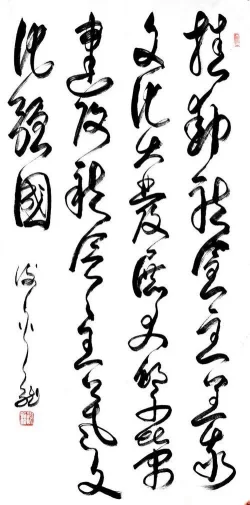 推動社會主義
文化大發展大繁榮
建設社會主義文
化強國